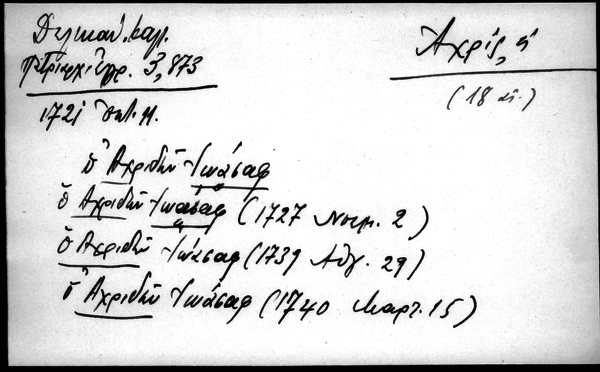 Δελικάν. Καλ.
Πατριαρχ. Ἔγγρ. 3,873
Ἀχρίς, ἡ
(18 αἰ.)
1721 Ὀκτ. 11.
ὁ Ἀχριδῶν Ἰωάσαφ
ὁ Ἀχριδῶν Ἰωάσαφ (1727 Νοεμ. 2)
ὁ Ἀχριδῶν Ἰωάσαφ (1739 Αὐγ. 29)
ὁ Ἀχριδῶν Ἰωάσαφ (1740 Μαρτ. 15)